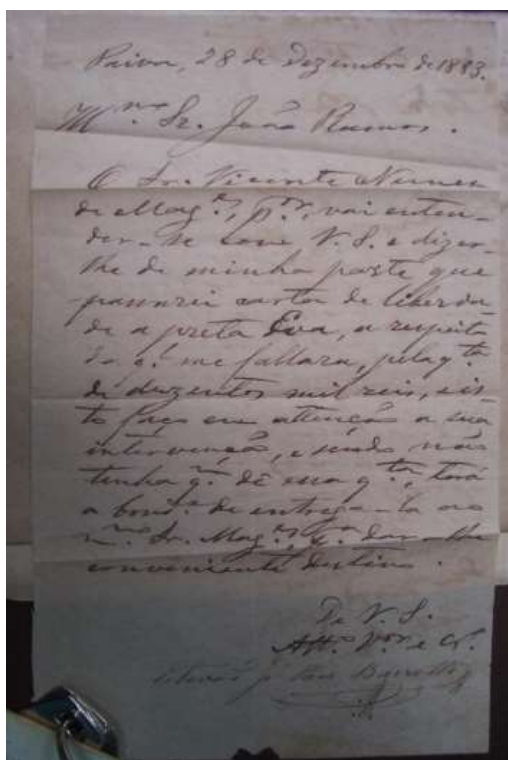 Paiva, 28 de Dezembro de 1883.
Mmo. Sr. João Ramos.
O Sr. Vicente Nunes
de Mages., pr., vai enten-
der-se com V. S. e dizer-
lhe de minha parte que
passarei carta de liberda-
de a preta Eva, a respeito
do q. me fallara, pela qta.
de duzentos mil reis, e is-
to faço em attenção a sua
intervenção, e sendo não
tenha qm. dê essa qta., terá
a bonde. de entrega-la ao
mmo. Sr. Mages., pa. dar-lhe
conveniente destino.
De V. S.
Atto. Vor. e Cr.
Barretto